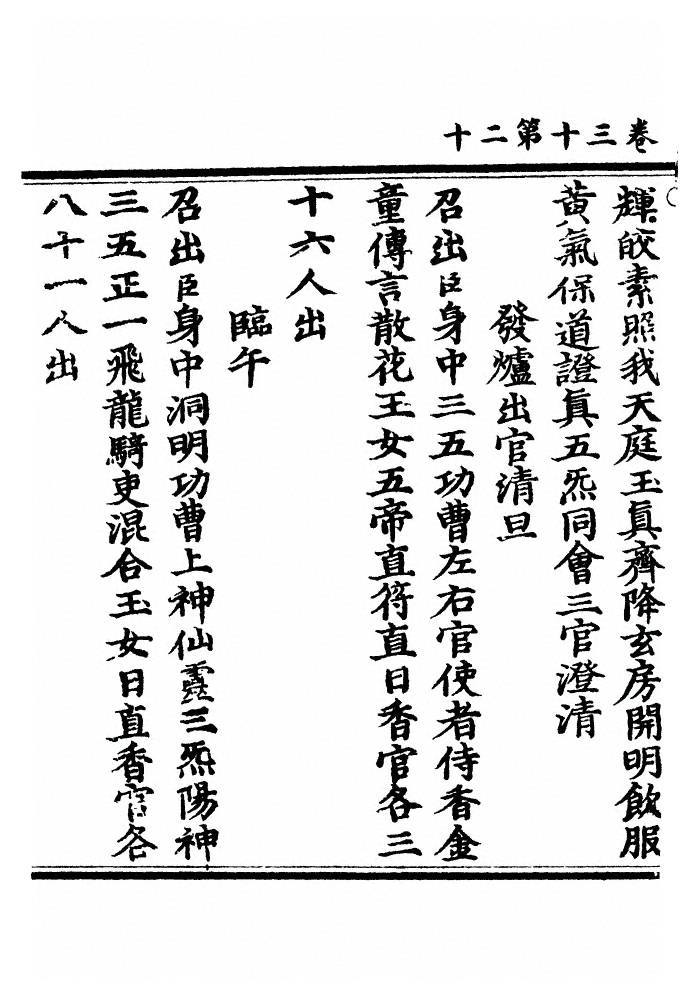 卷三十第二十
輝皎素照我天庭玉眞齊降玄房開明飲服
黃氣保道證眞五炁同會三官澄清
發爐出官清旦
召出臣身中三五功曹左右官使者侍香金
童傳言散花玉女五帝直符直日香官各三
十六人出
臨午
召出臣身中洞明功曹上神仙靈三炁陽神
三五正一飛龍騎吏混合玉女日直香官各
八十一人出